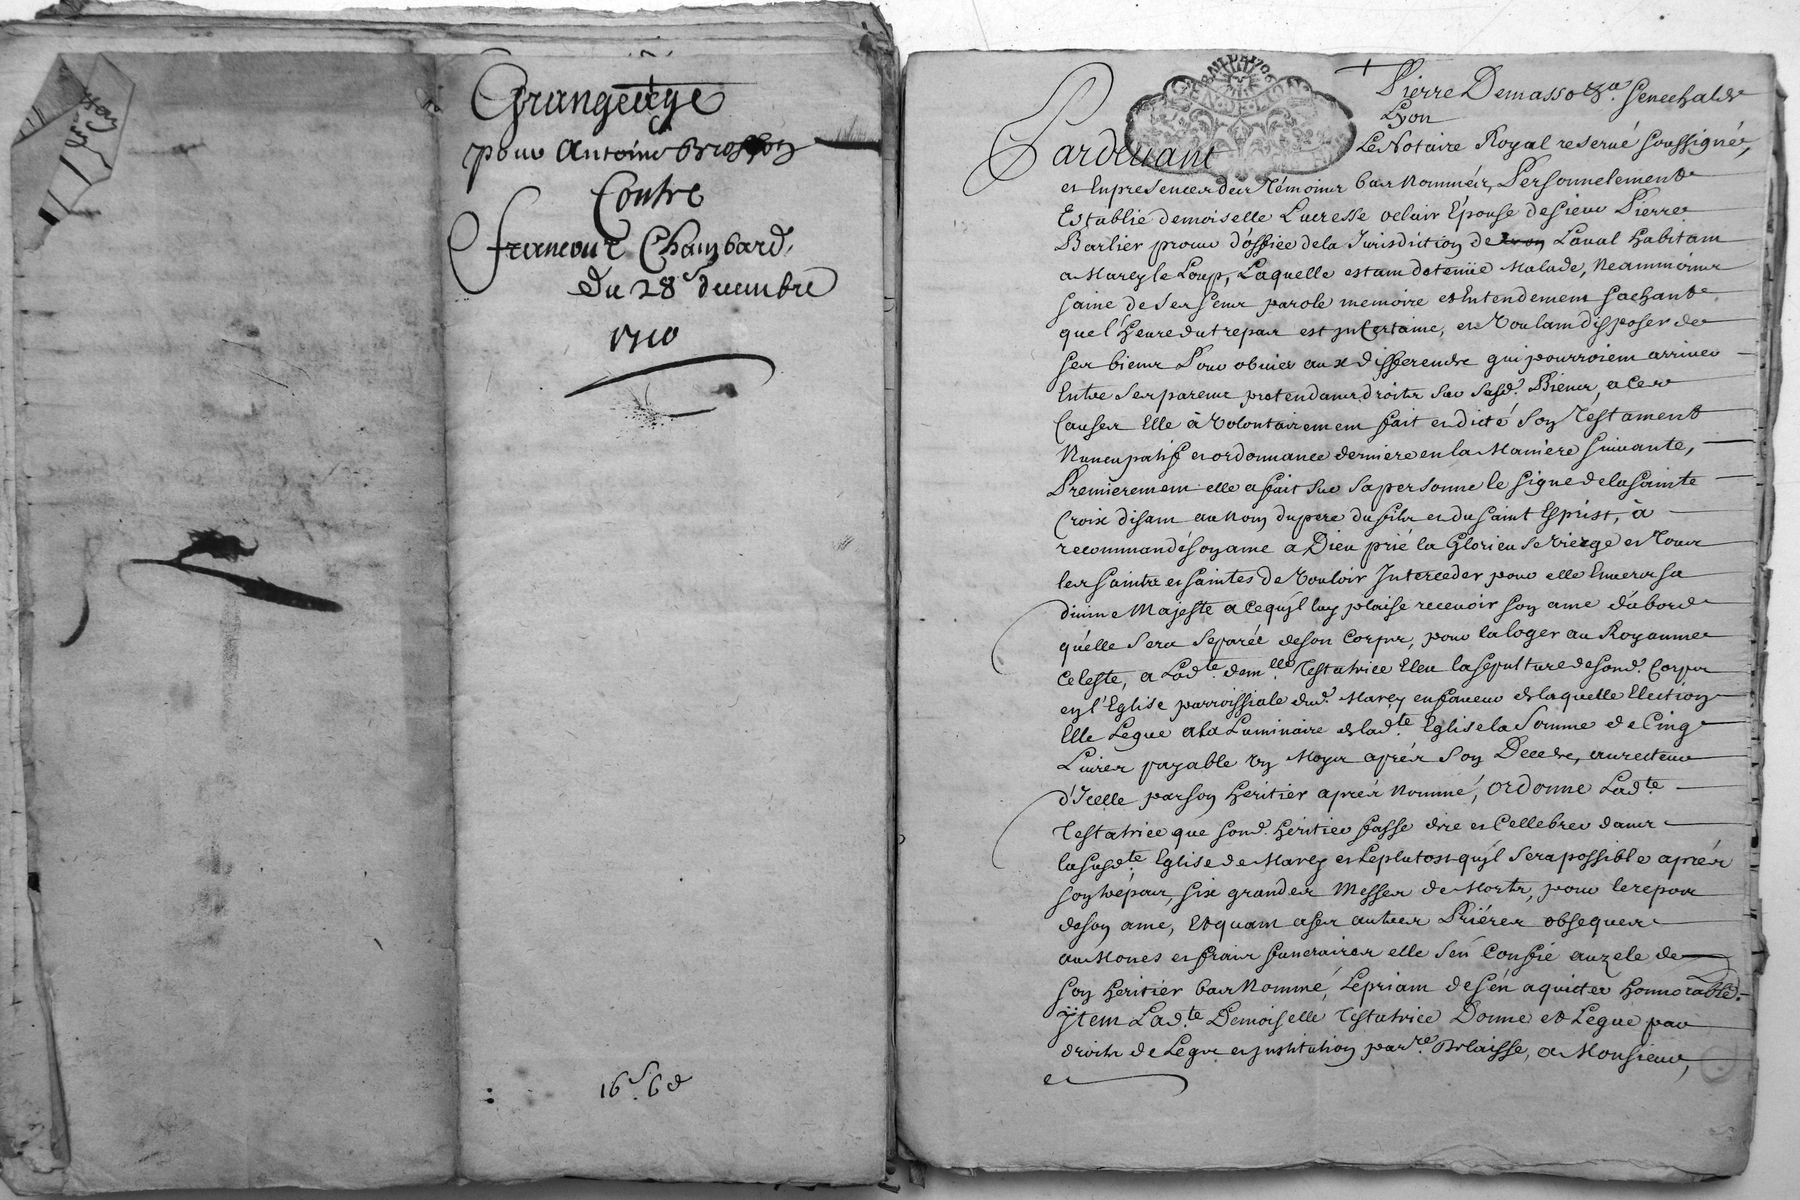 Grangeage
pour Antoine Brosson
Contre
francois Chambard
du 28e decembre
1710
16s 6d
GEN. DE MOULINS
Pierre Demasso Senechal de
Lyon
Pardevant Le Notaire Royal reservé soussigné,
et En presences des Témoins bas Nommés, Personnelement
Establie demoiselle Lucresse velair Épouse de sieur Pierre
Barlier procur d'office de la Jurisdiction de Laval habitant
a Marcy le Loup, Laquelle estant detenüe Malade, Neammoins
saine de ses sens parole memoire et Entendement sachant
que l'heure du trepas est incertaine, et Voulant disposer de
ses biens Pour obvier aux differends qui pourroient arriver
Entre ses parens pretendans droits sur susd. Biens, a ces
Causes Elle à volontairement fait et dicté son Testament
Nuncupatif et ordonnance derniere en la Maniere suivante,
Premierement elle a fait sur sa personne le signe de la sainte
Croix disant au Nom du pere du fils et du saint Esprit, à
recommandé son ame a Dieu prié la Glorieuse vierge et Tous
les saints et saintes de vouloir Interceder pour elle Envers sa
divine Majesté a ce qu'il luy plaise recevoir son ame d'abord
qu'elle sera separée de son Corps, pour la loger au Royaume
Celeste, a Lad.te dem.lle Testatrice Eleu la sepulture de sond. Corps
en l'Eglise parroissiale dud. Marcy en faveur de laquelle Election
Elle Legue a la Luminaire de lad.te Eglise la Somme de Cinq
Livres payable un Moys aprés son Decedz, au recteur
d'Icelle par son heritier aprés Nommé, ordonne Lad.te
Testatrice que sond. heritier fasse dire et Cellebrer dans
la susd.te Eglise de Marcy et le plutost qu'il sera possible aprés
son trépas, six grandes Messes de Morts, pour le repos
de son ame, Et quant a ses autres Priéres obseques
aumones et frais funeraires elle s'en Confie au zele de
son heritier bas Nommé, Le priant de s'en aquitter honnorabl.
Item Lad.te Demoiselle Testatrice Donne et Legue par
droits de Legs et institution par.re Delaisse, a Monsieur,